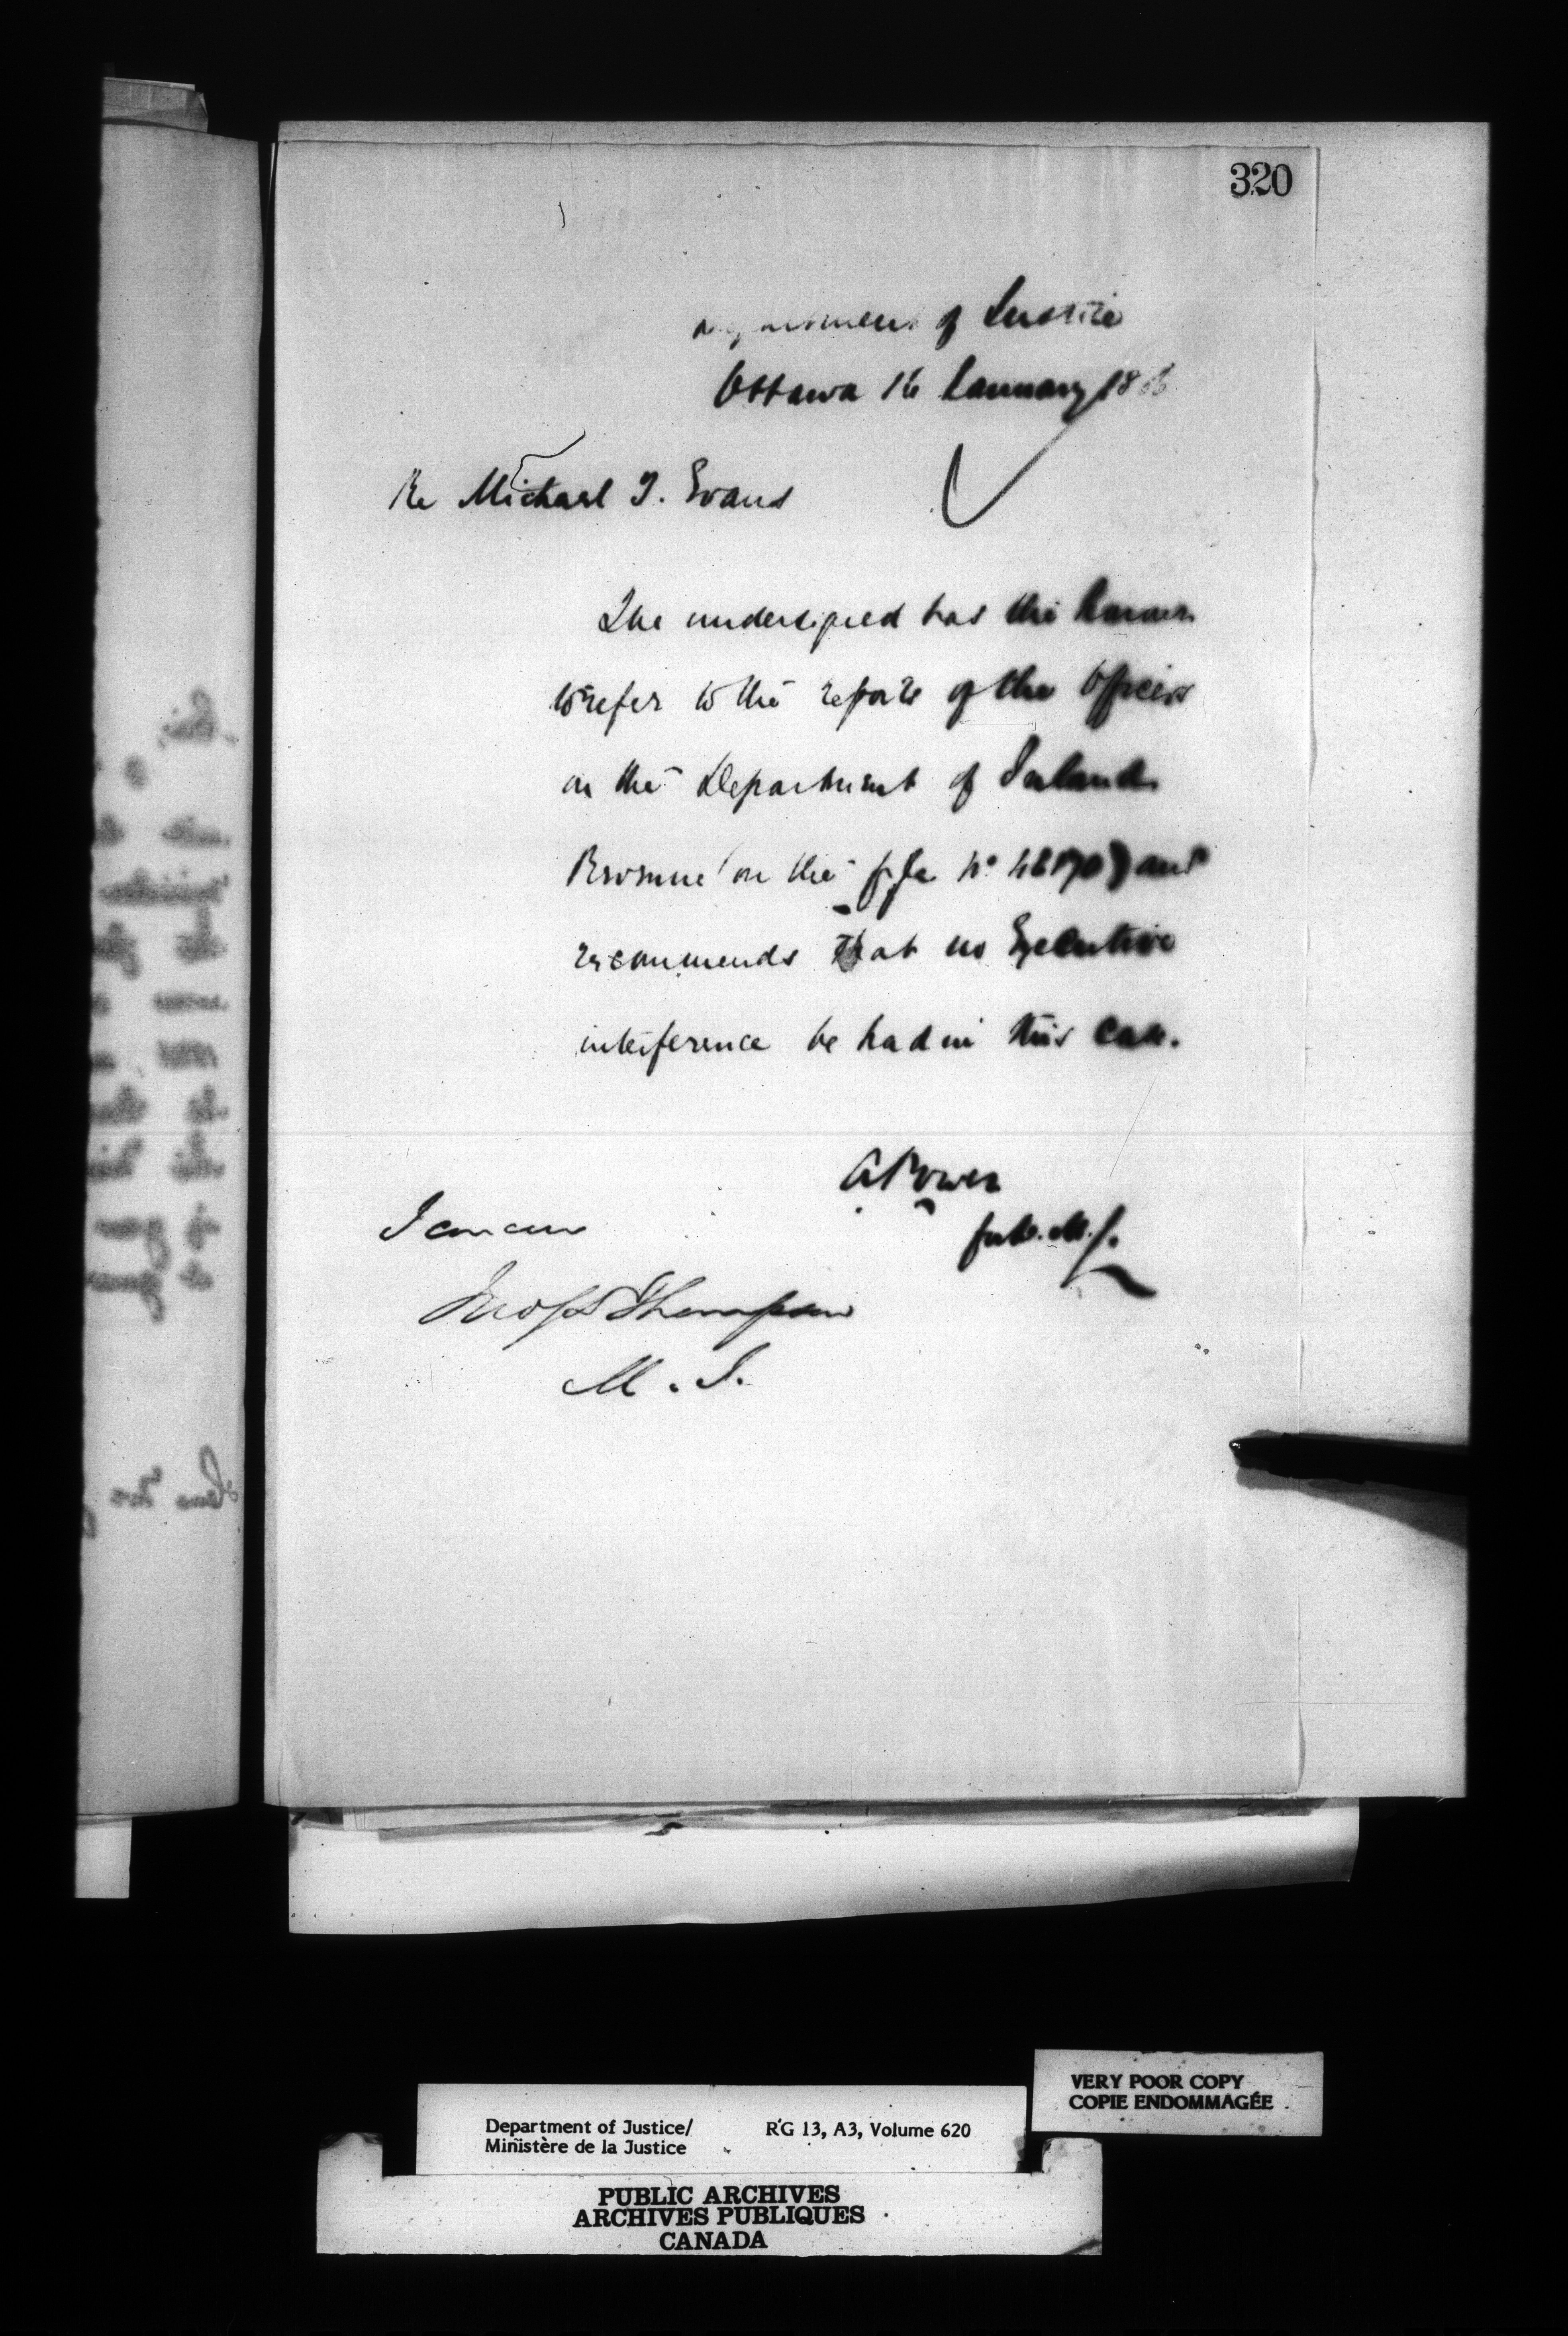 320
Department of Justice
Ottawa 16 January 188
Re Michael J. Evans
The undersigned has the honour
to refer to the reports of the Officers
in the Department of Inland
Revenue (on the file No ) and
recommends that no Executive
interference be had in this case.
A Power
for D. M. J.
I concur
Jno S D Thompson
M. J.
Department of Justice/
Ministère de la Justice
RG 13, A3, Volume 620
VERY POOR COPY
COPIE ENDOMMAGÉE
PUBLIC ARCHIVES
ARCHIVES PUBLIQUES
CANADA